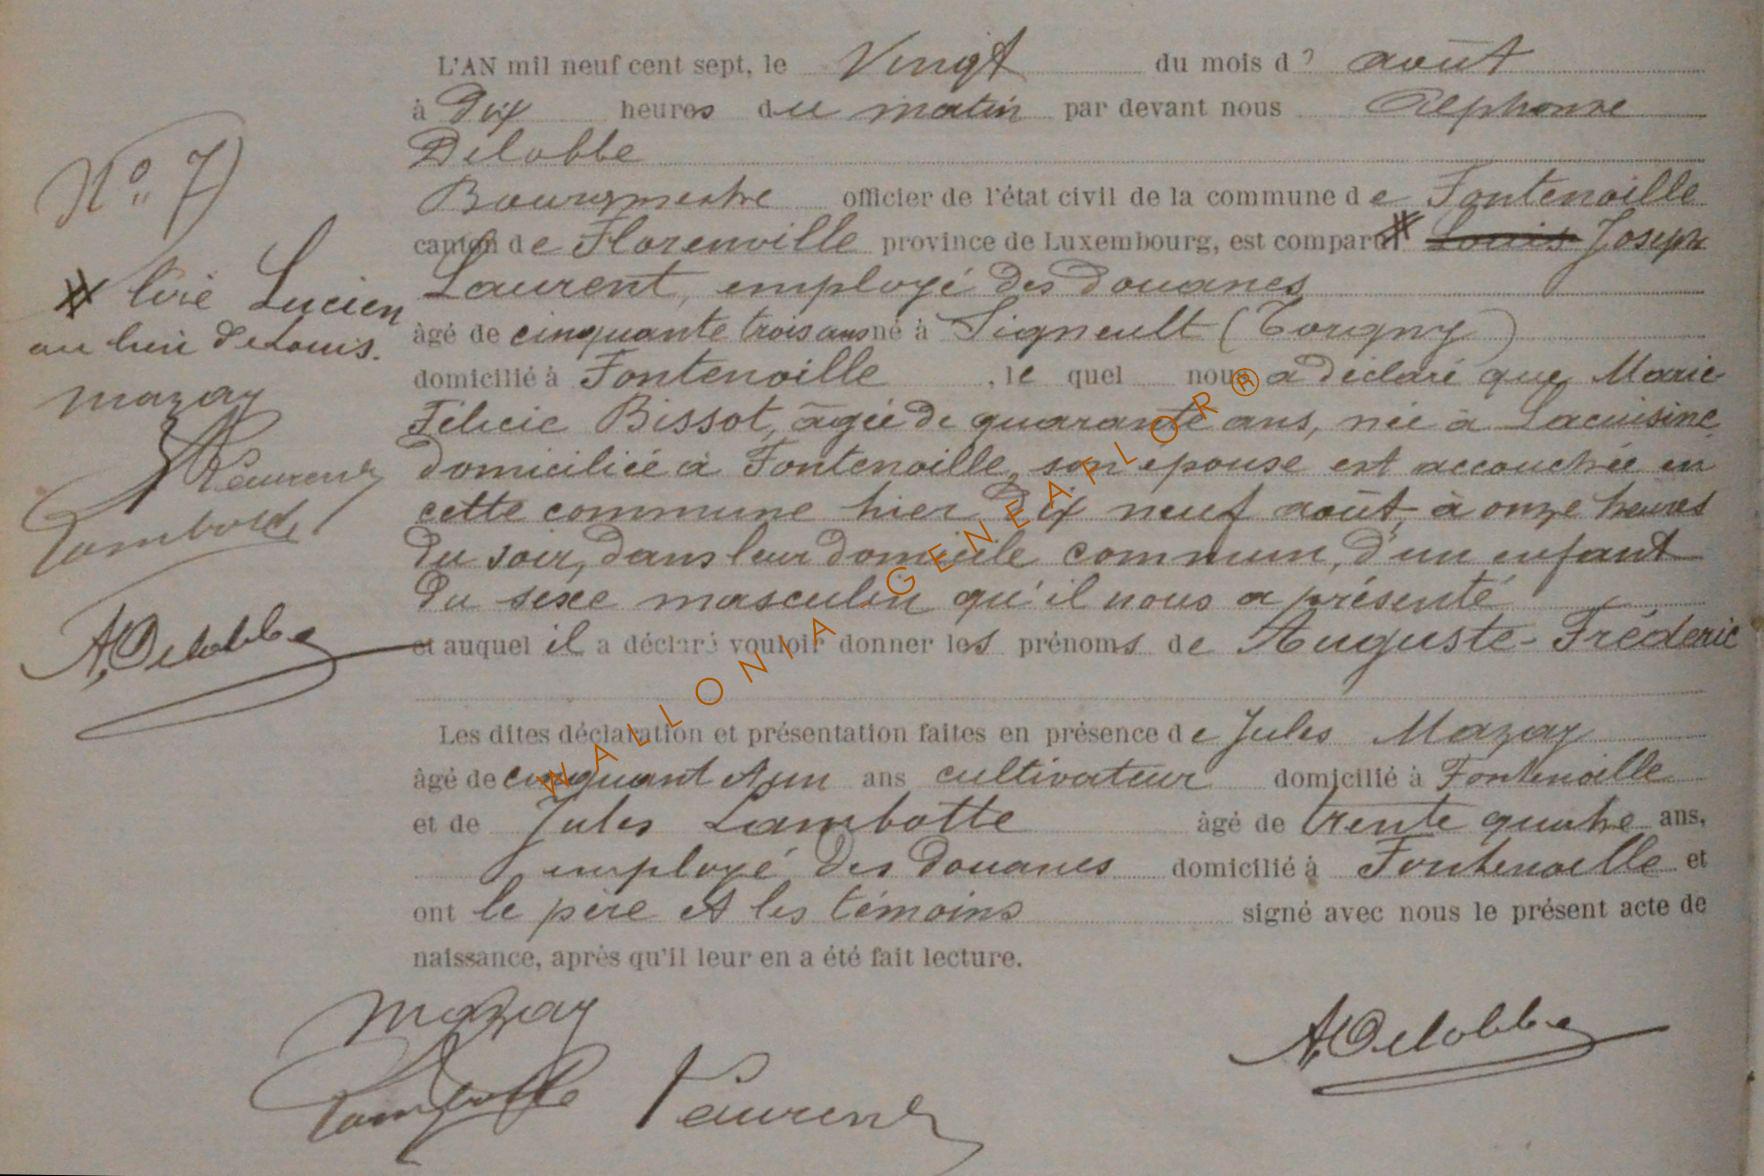 L'AN mil neuf cent sept, le Vingt du mois d' août
à Dix heures du matin par devant nous Alphonse
Delobbe
Bourgmestre officier de l'état civil de la commune de Fontenoille
canton de Florenville province de Luxembourg, est comparu # Louis Joseph
Laurent, employé des douanes
âgé de cinquante trois ans né à Signeult (Torgny)
domicilié à Fontenoille, le quel nous a déclaré que, Marie
Félicie Bissot, âgée de quarante ans, née à Lacuisine
domiciliée à Fontenoille, son épouse est accouchée en
cette commune hier Dix neuf août, à onze heures
du soir, dans leur domicile commun, d'un enfant
du sexe masculin qu'il nous a présenté
et auquel il a déclaré vouloir donner les prénoms de Auguste-Fréderic
Les dites déclaration et présentation faites en présence de Jules Mazay
âgé de cinquant et un ans cultivateur domicilié à Fontenoille
et de Jules Lambotte âgé de trente quatre ans,
employé des douanes domicilié à Fontenoille et
ont le père et les témoins signé avec nous le présent acte de
naissance, après qu'il leur en a été fait lecture.
Mazay
Lambotte Laurent
A. Delobbe
N° 7)
# lire Lucien
au lieu de Louis.
Mazay
Laurent
Lambotte
A. Delobbe
WALLONIA GENEAFLOR®